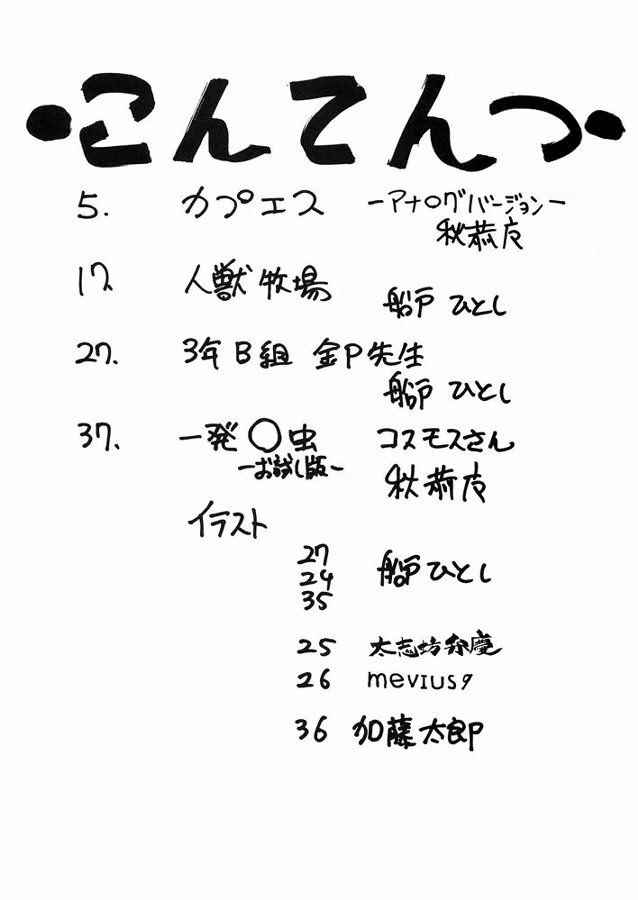 ・こんてんつ・
5. カプエス -アナログバージョン-
秋恭彦
17. 人獣牧場
船戸 ひとし
27. 3年B組 金P先生
船戸 ひとし
37. 一発〇虫 コスモスさん
-お試し版-
秋恭彦
イラスト
27
24 船戸ひとし
35
25 太志坊弁慶
26 mevius9
36 加藤太郎